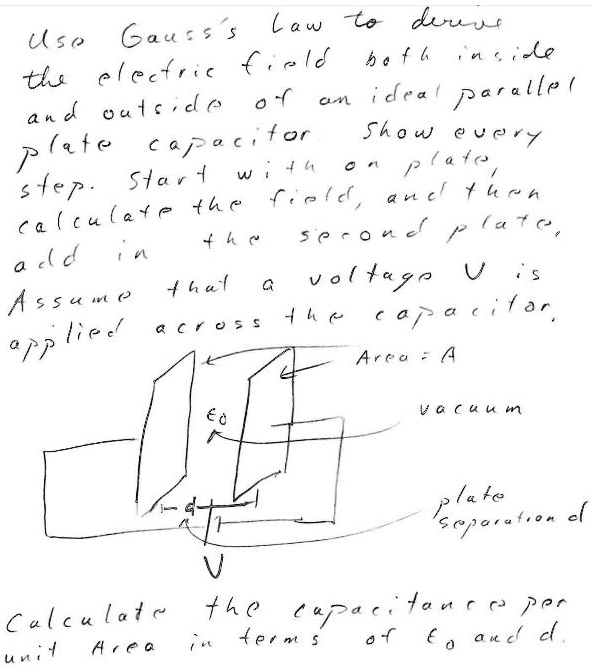 Use Gauss's Law to derive
the electric field both inside
and outside of an ideal parallel
plate capacitor Show every
step. Start with on plate,
calculate the field, and then
add in the second plate.
Assume that a voltage V is
applied across the capacitor.
Area = A
ε0
vacuum
d
plate
separation d
V
Calculate the capacitance per
unit Area in terms of ε0 and d.